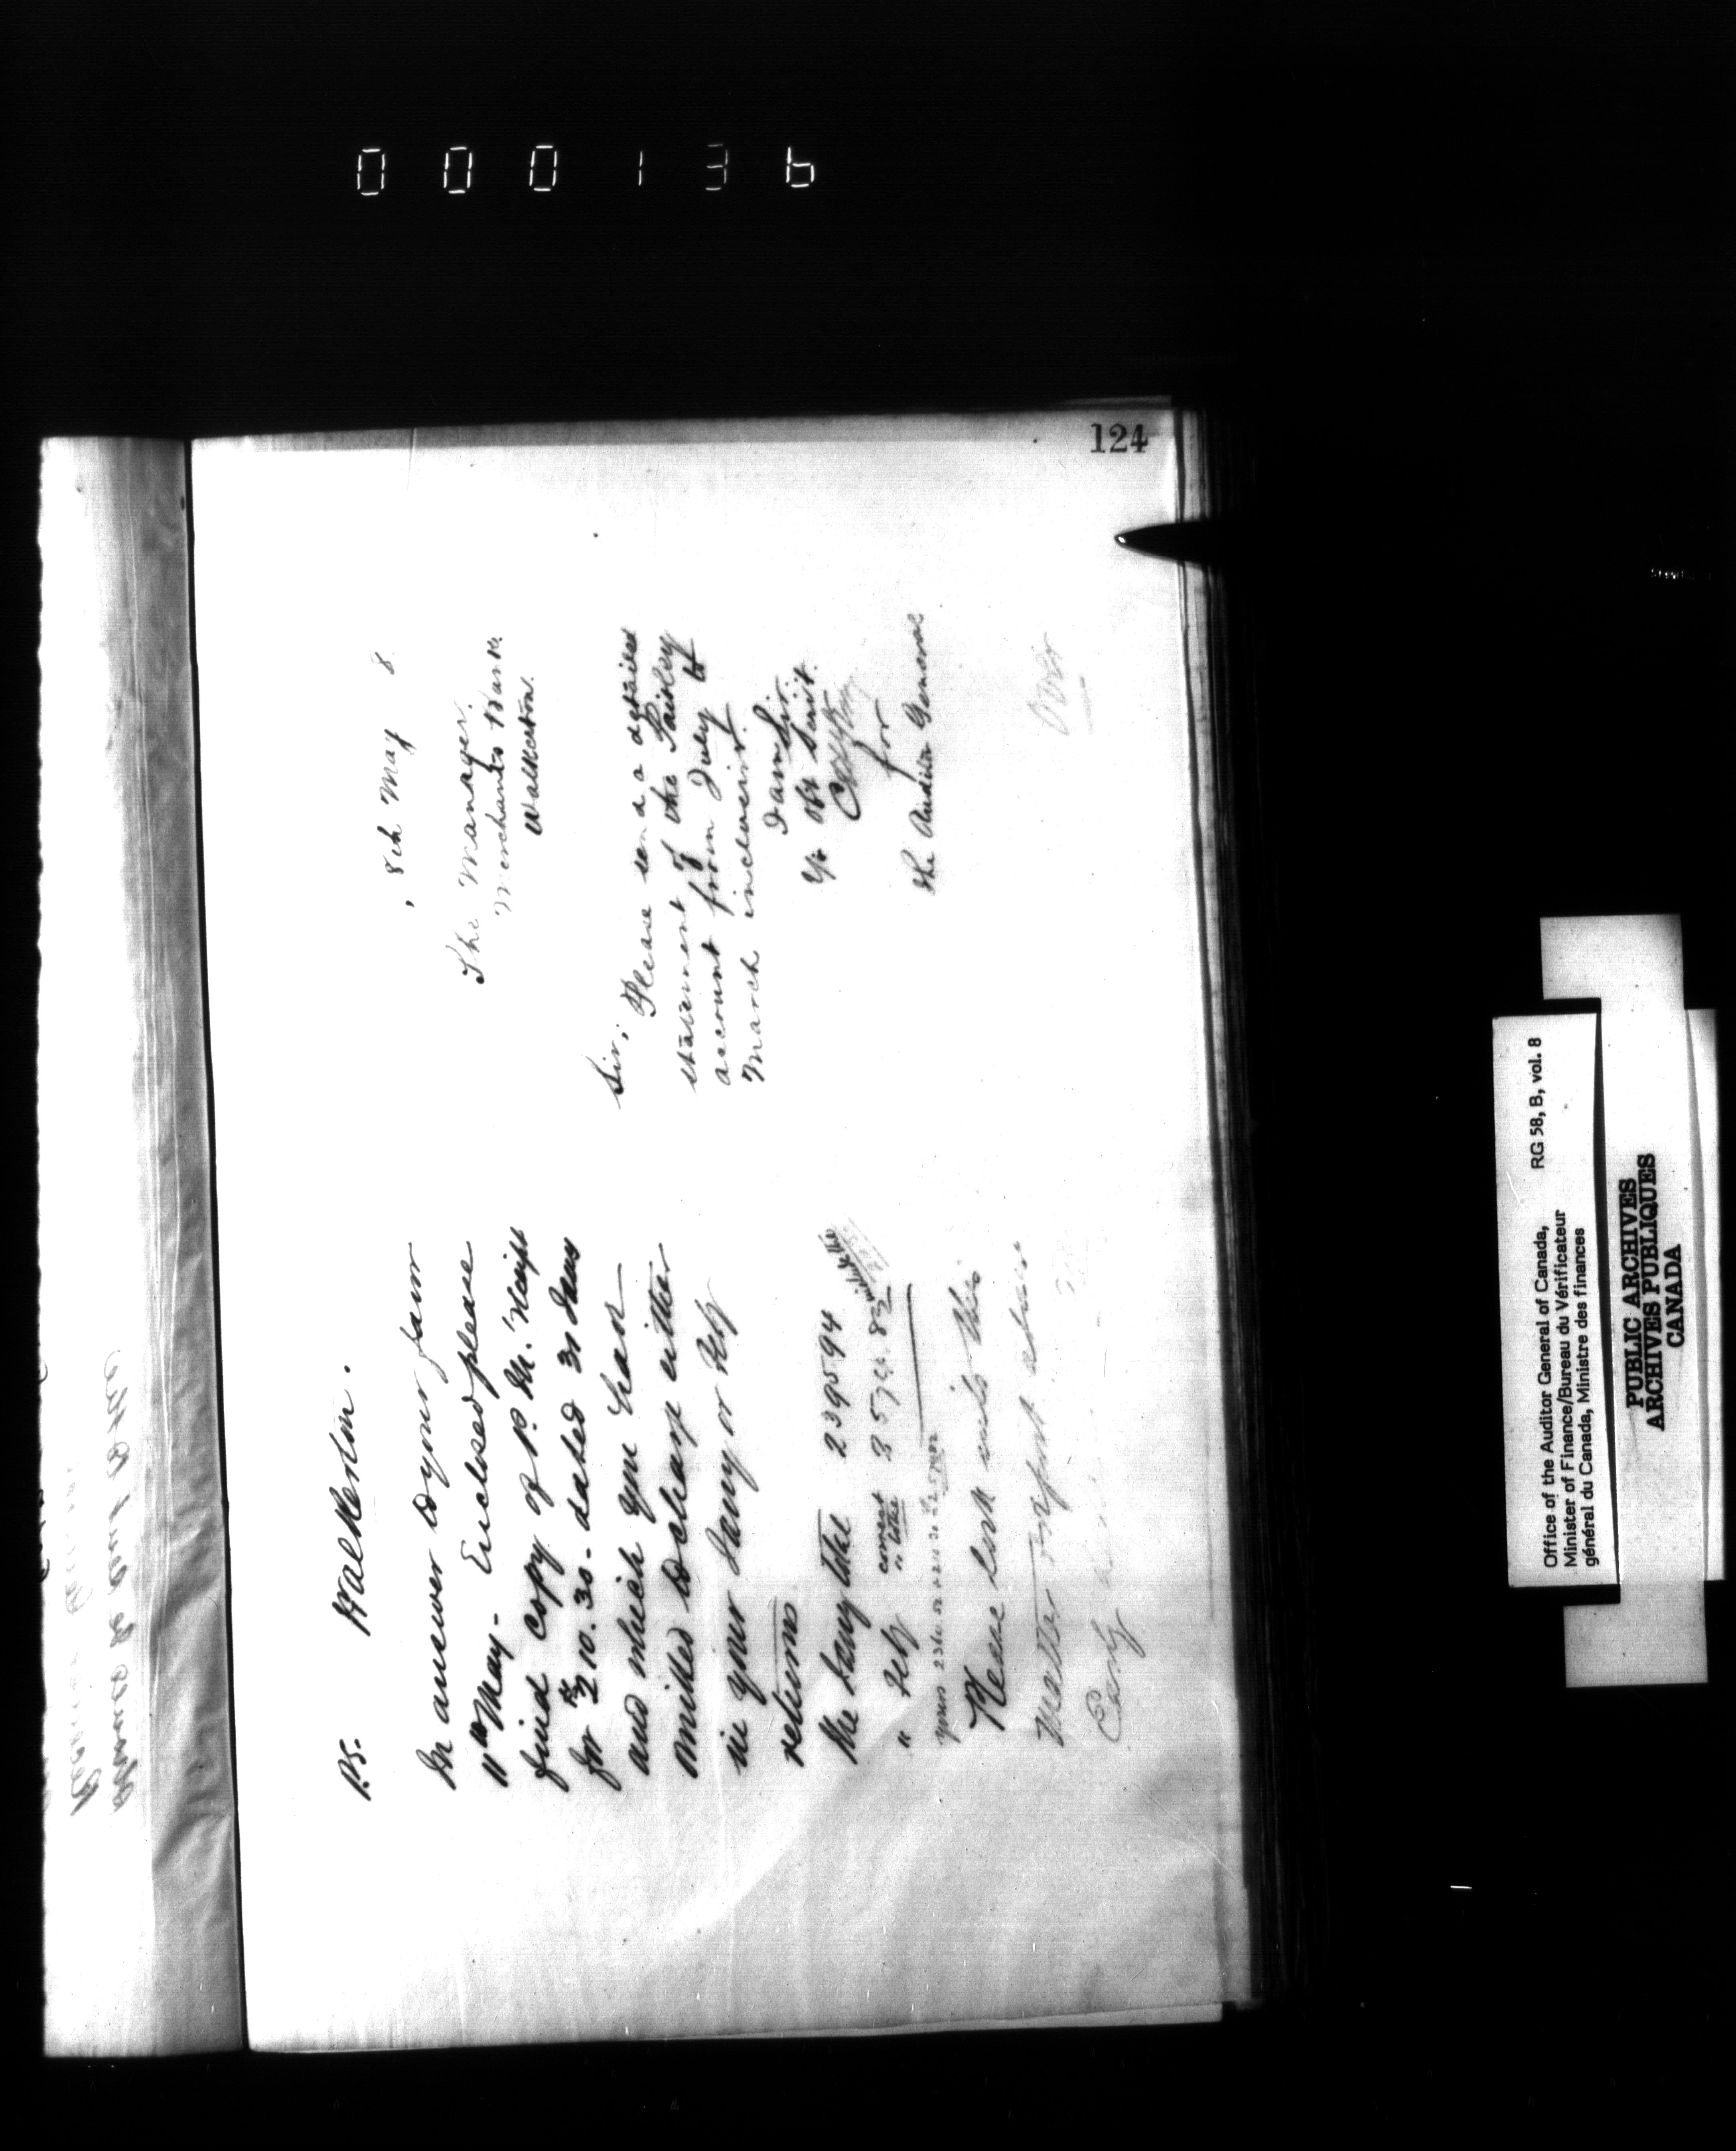 000136
124
8th May 8
The Manager.
Merchants Bank
Walkerton.
Sir,
Please send a detailed
statement of the Paisley
account from July to
March inclusive.
I am Sir
Yr Obt Servt.
for
The Auditor General
Over
P.S. Walkerton.
In answer to your favor
11th May - Enclosed please
find copy of P. M. receipt
for $210.30 - dated 30 Jany
and which you have
omitted to charge either
in your Jany or Feby
returns
the Jany total 239594
" Feby correct " total 2574.82
yours
Please look into this
matter & report
Early
Office of the Auditor General of Canada, RG 58, B, vol. 8
Minister of Finance/Bureau du Vérificateur
général du Canada, Ministre des finances
PUBLIC ARCHIVES
ARCHIVES PUBLIQUES
CANADA